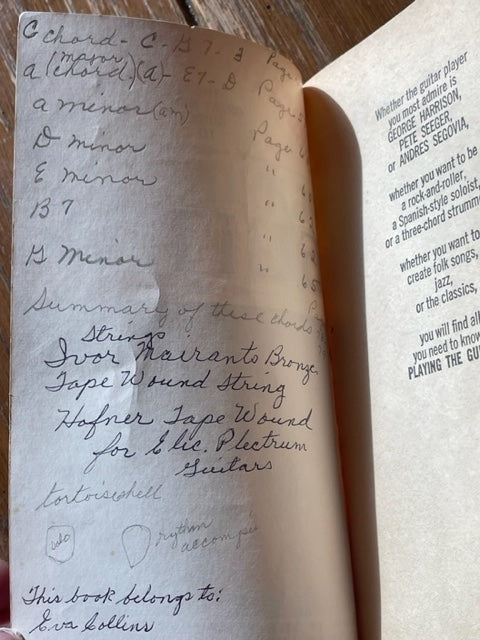 C chord - C - G 7 - Page
(major
a (chord.) (a) - E7 - D Page 5
a minor (am) Page 6
D minor "
E minor " 6
B 7 " 62
" 62
G Minor " 65
Summary of these chords
Strings
Ivor Mairants Bronze
Tape Wound String
Hofner Tape Wound
for Elec. Plectrum
Guitars
tortoiseshell
solo
rythm
accompi
This book belongs to:
Eva Collins
Whether the guitar player
you most admire is
GEORGE HARRISON,
PETE SEEGER,
or ANDRES SEGOVIA,
whether you want to be
a rock-and-roller,
a Spanish-style soloist,
or a three-chord strumme
whether you want to
create folk songs,
jazz,
or the classics,
you will find all
you need to know
PLAYING THE GUI